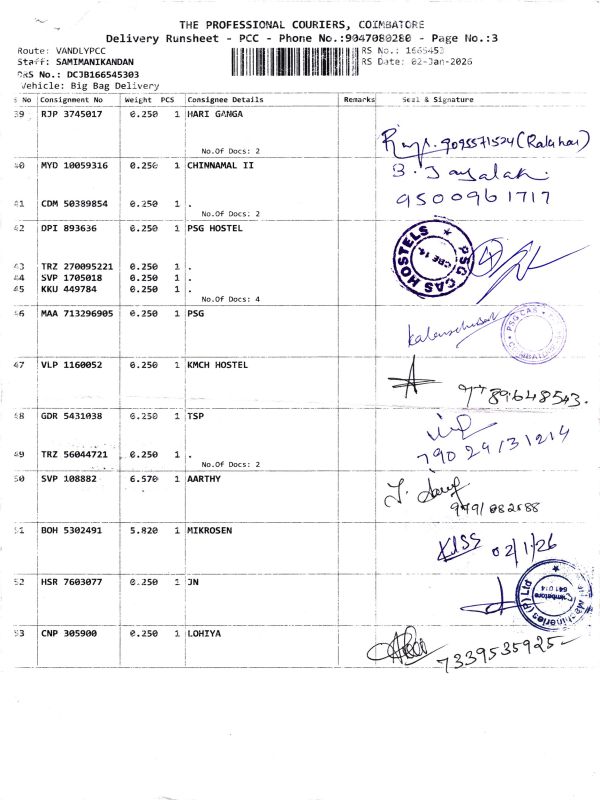 THE PROFESSIONAL COURIERS, COIMBATORE
Delivery Runsheet - PCC - Phone No.:9047080280 - Page No.:3
Route: VANDLYPCC
RS No.: 1665453
Staff: SAMIMANIKANDAN
RS Date: 02-Jan-2026
DRS No.: DCJB166545303
Vehicle: Big Bag Delivery
S No Consignment No Weight PCS Consignee Details Remarks Seal & Signature
39 RJP 3745017 0.250 1 HARI GANGA
No.Of Docs: 2
9095571524
40 MYD 10059316 0.250 1 CHINNAMAL II
B. Jayalak
41 CDM 50389854 0.250 1 .
9500961717
No.Of Docs: 2
42 DPI 893636 0.250 1 PSG HOSTEL
PSG CAS HOSTELS
CBE 14
4
43 TRZ 270095221 0.250 1 .
44 SVP 1705018 0.250 1 .
45 KKU 449784 0.250 1 .
No.Of Docs: 4
46 MAA 713296905 0.250 1 PSG
PSG CAS
47 VLP 1160052 0.250 1 KMCH HOSTEL
9789648543.
48 GDR 5431038 0.250 1 TSP
790 29/31214
49 TRZ 56044721 0.250 1 .
No.Of Docs: 2
50 SVP 108882 6.570 1 AARTHY
51 BOH 5302491 5.820 1 MIKROSEN
02/1/26
52 HSR 7603077 0.250 1 JN
Machineries (P) Ltd
Coimbatore
641 014
53 CNP 305900 0.250 1 LOHIYA
7339535925